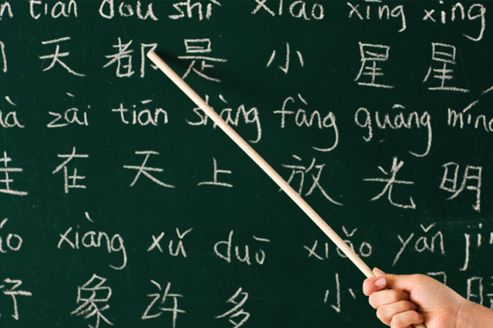 n tiān dōu shì xiǎo xīng xīng
天 都 是 小 星 星
à zài tiān shàng fàng guāng míng
在 天 上 放 光 明
ǎo xiàng xǔ duō xiǎo yǎn jīn
象 许 多 小